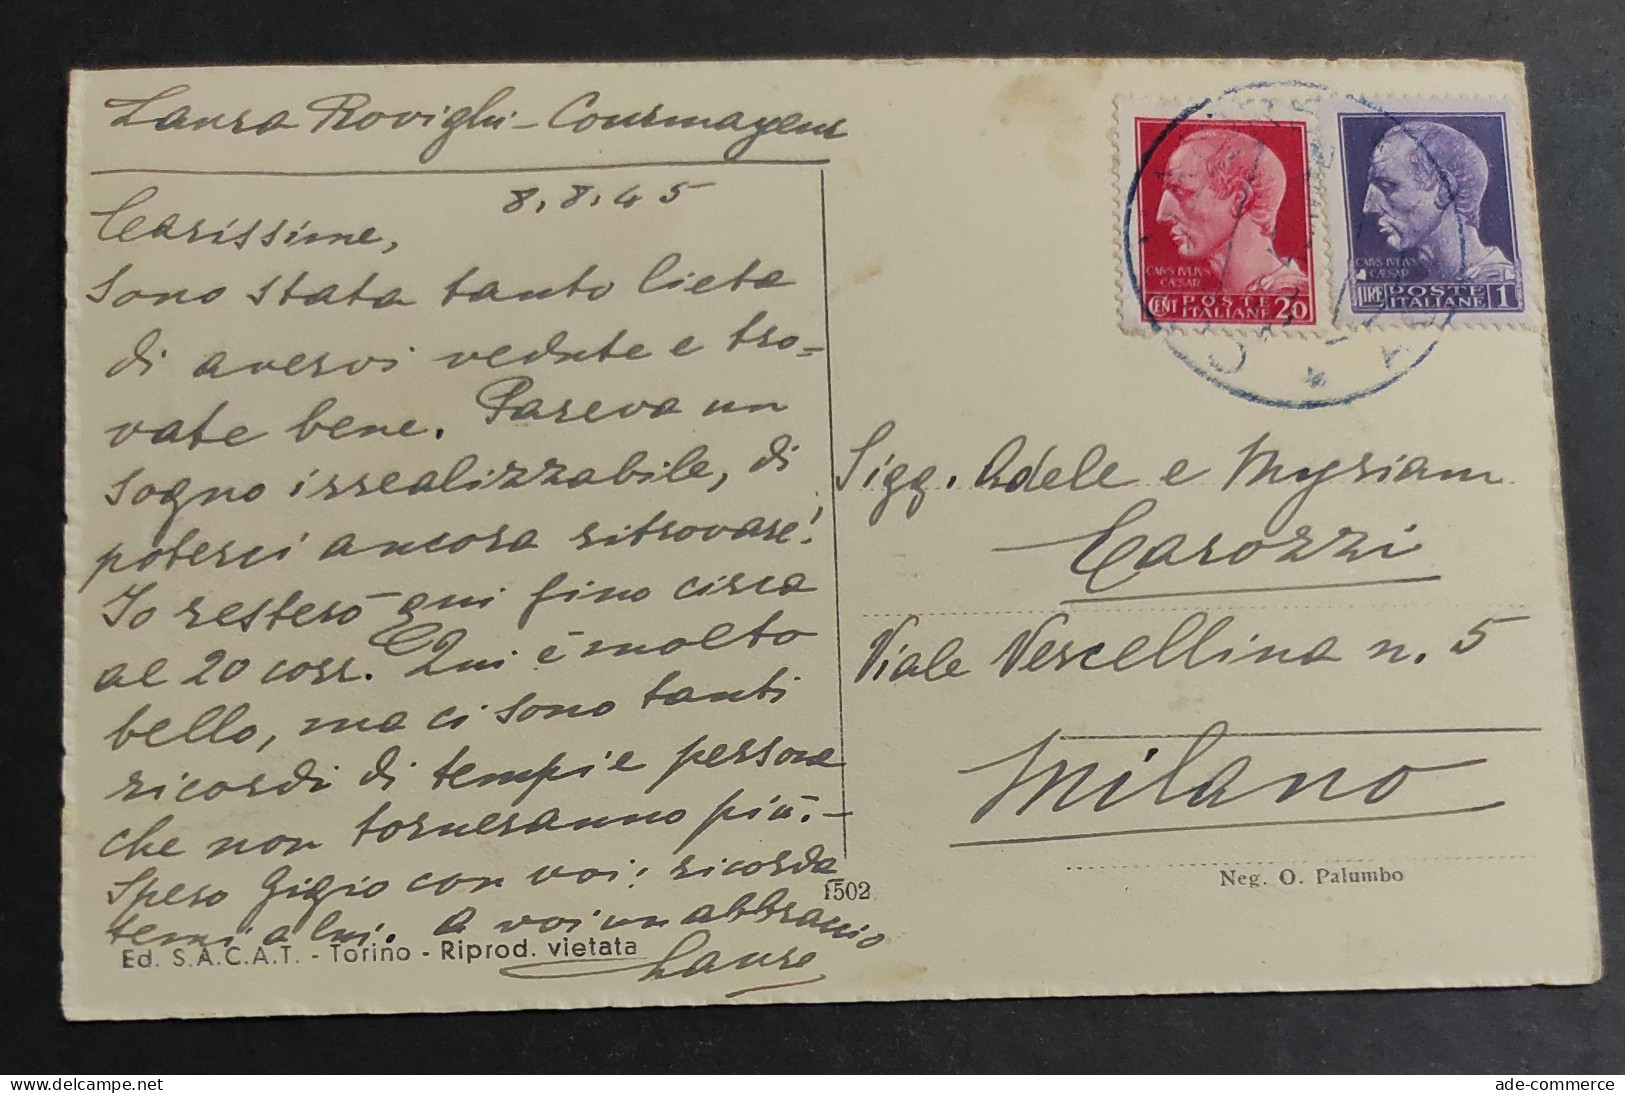 Laura Rovighi - Courmayeur
8.8.45
Carissime,
Sono stata tanto lieta
di avervi vedute e tro=
vate bene. Pareva un
sogno irrealizzabile, di
poterci ancora ritrovare!
Io resterò qui fino circa
al 20 corr. Qui è molto
bello, ma ci sono tanti
ricordi di tempi e persone
che non torneranno più.-
Spero Gigio con voi: ricorda
temi a lui. A voi un abbraccio
Laura
1502
Ed. S.A.C.A.T. - Torino - Riprod. vietata
CAIVS IVLIVS
CÆSAR
CENT POSTE ITALIANE 20
CAIVS IVLIVS
CÆSAR
LIRE POSTE ITALIANE 1
Sigg. Adele e Myriam
Carozzi
Viale Vercellina n. 5
Milano
Neg. O. Palumbo
delcampe.net
ade-commerce